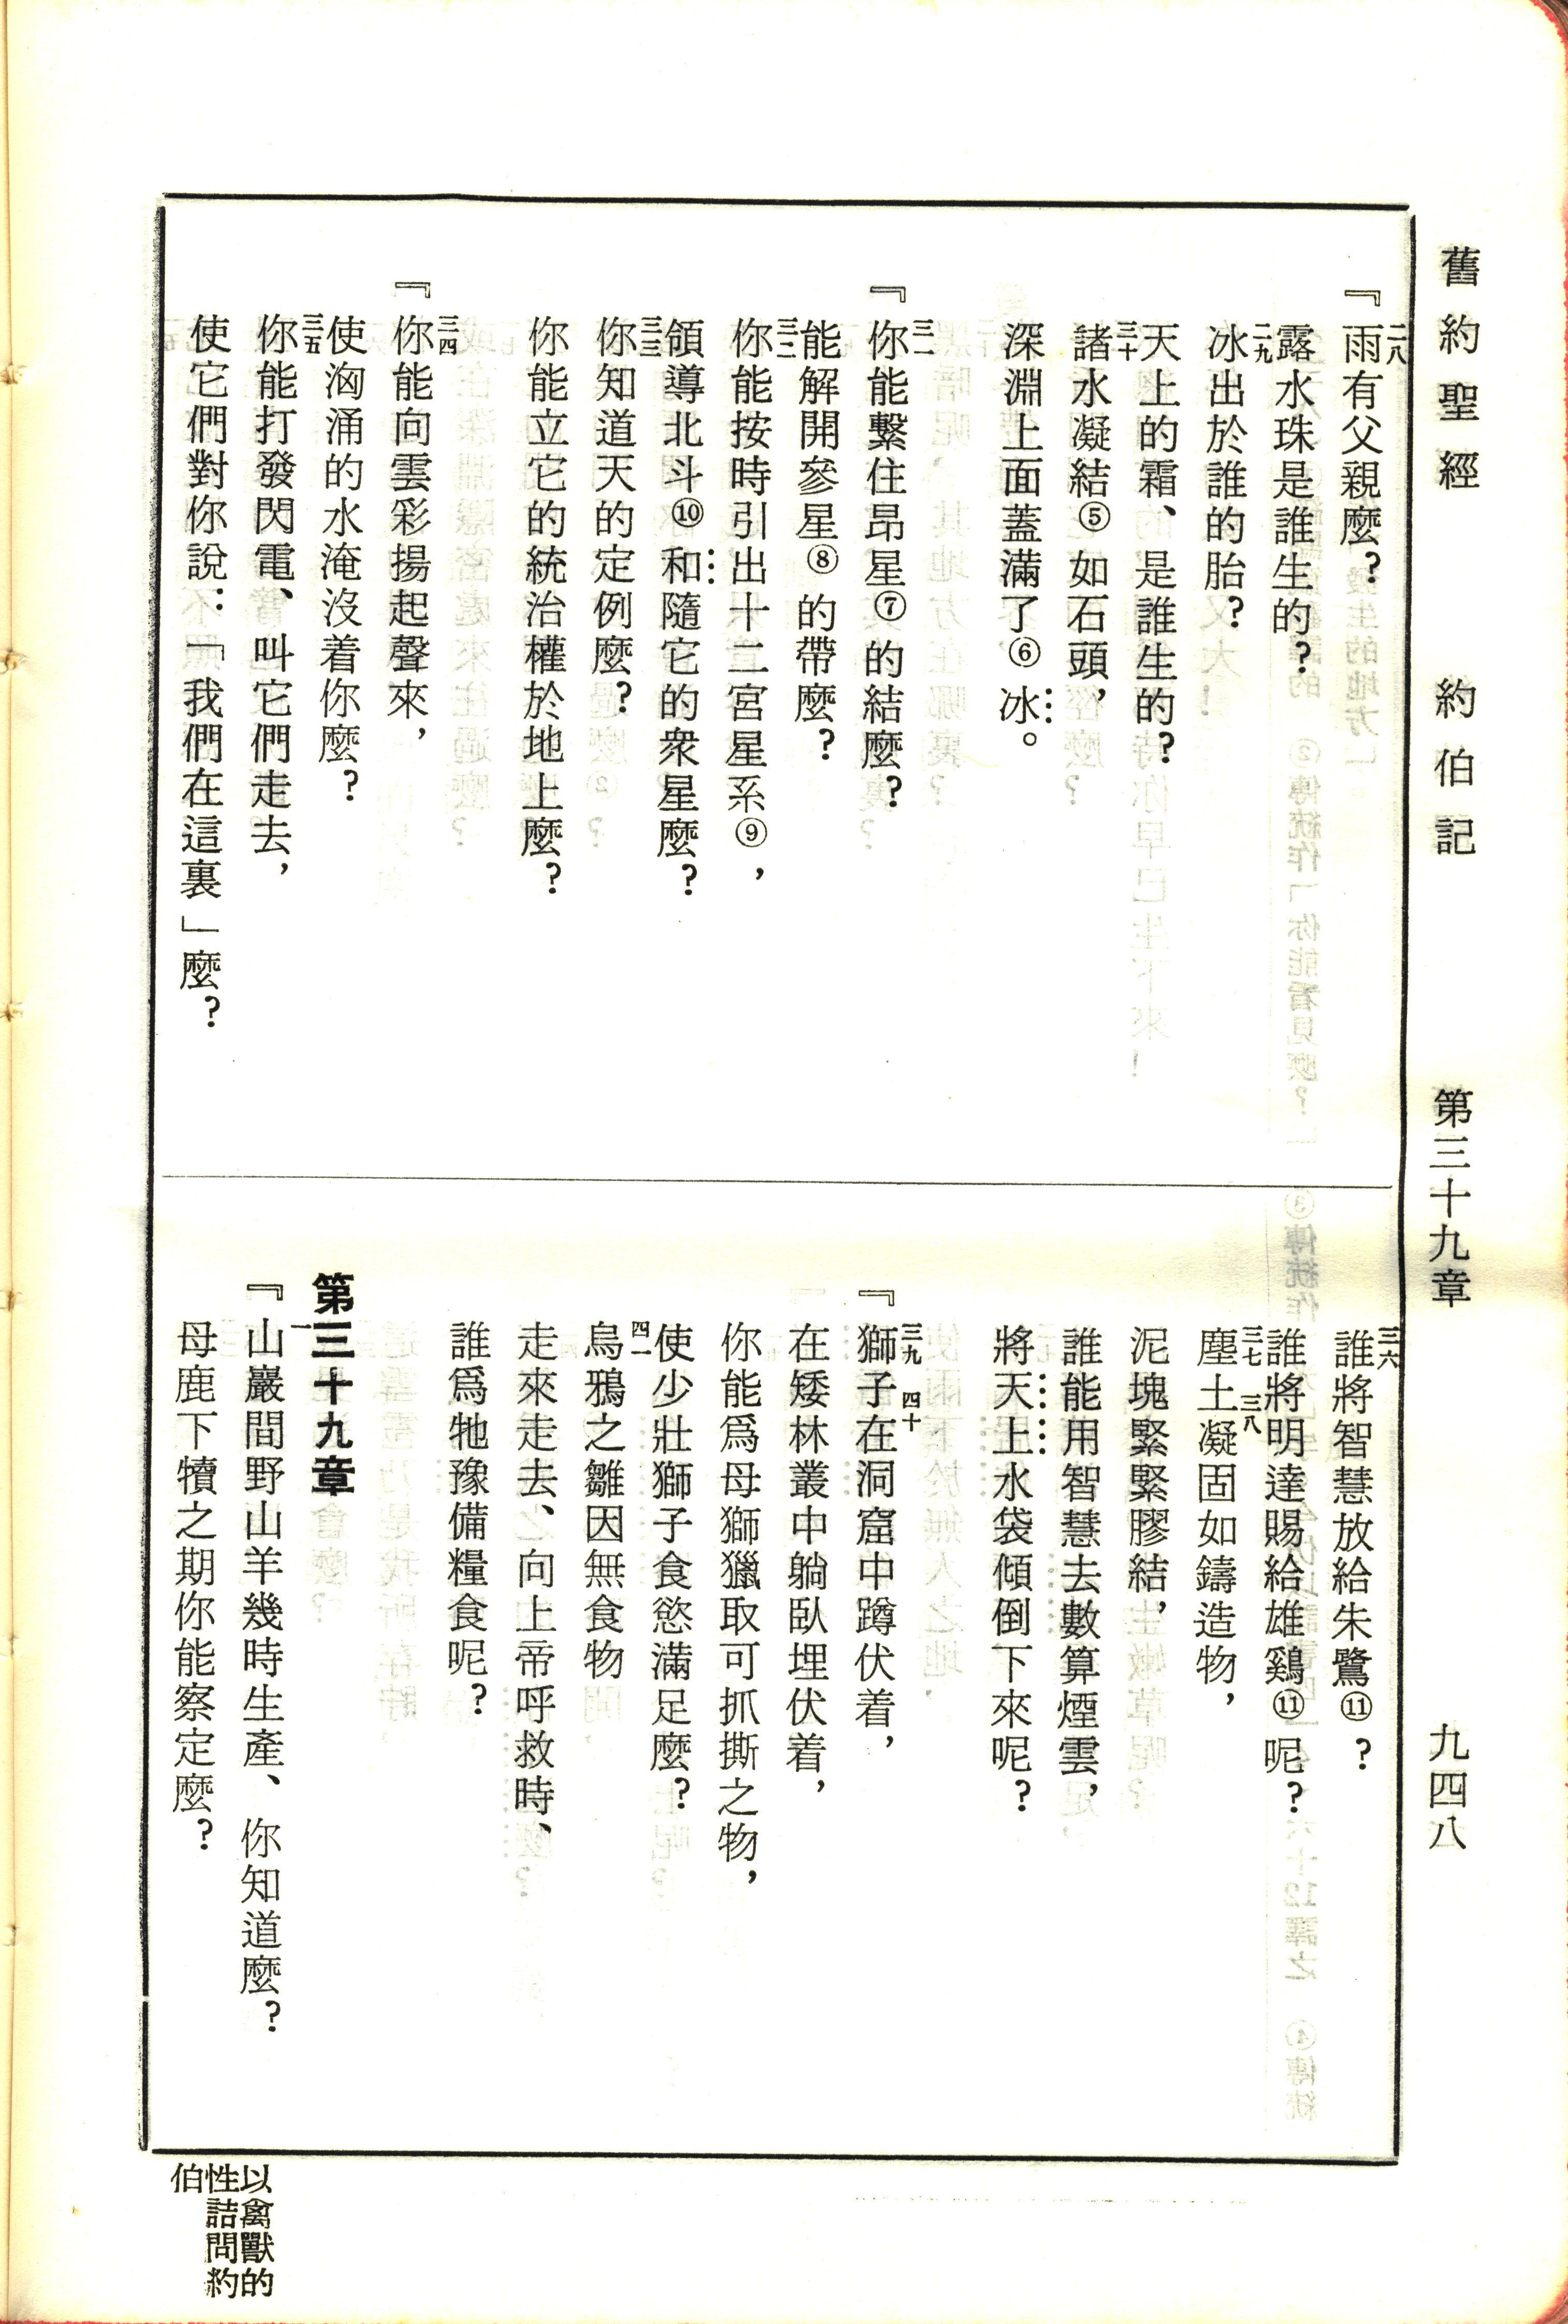 舊約聖經　約伯記　第三十九章　九四八
二八『雨有父親麼？
露水珠是誰生的？
二九冰出於誰的胎？
天上的霜、是誰生的？
三十諸水凝結⑤如石頭，
深淵上面蓋滿了⑥冰。
三一『你能繫住昴星⑦的結麼？
能解開參星⑧的帶麼？
三二你能按時引出十二宮星系⑨，
領導北斗⑩和隨它的衆星麼？
三三你知道天的定例麼？
你能立它的統治權於地上麼？
三四『你能向雲彩揚起聲來，
使洶涌的水淹沒着你麼？
三五你能打發閃電、叫它們走去，
使它們對你說：「我們在這裏」麼？
三六誰將智慧放給朱鷺⑪？
誰將明達賜給雄鷄⑪呢？
三七三八塵土凝固如鑄造物，
泥塊緊緊膠結，
誰能用智慧去數算煙雲，
將天上水袋傾倒下來呢？
三九四十『獅子在洞窟中蹲伏着，
在矮林叢中躺臥埋伏着，
你能爲母獅獵取可抓撕之物，
使少壯獅子食慾滿足麼？
四一烏鴉之雛因無食物
走來走去、向上帝呼救時、
誰爲牠豫備糧食呢？
第三十九章
一『山巖間野山羊幾時生產、你知道麼？
母鹿下犢之期你能察定麼？
以禽獸的
性詰問約
伯